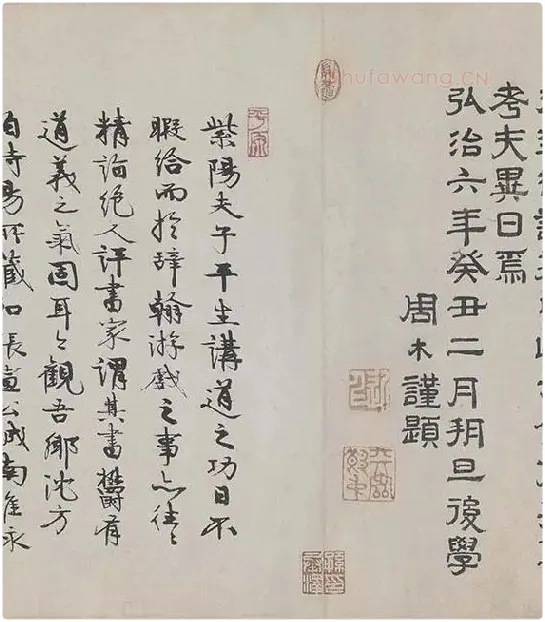 考夫異日焉
弘治六年癸丑二月朔旦後學
周木謹題
紫陽夫子平生講道之功日不
暇給而於辭翰游戲之事亦往〻
精詣絕人評書家謂其書鬱有
道義之氣固耳〻觀吾鄉沈方
伯時暘所藏
平原
hufawang.CN